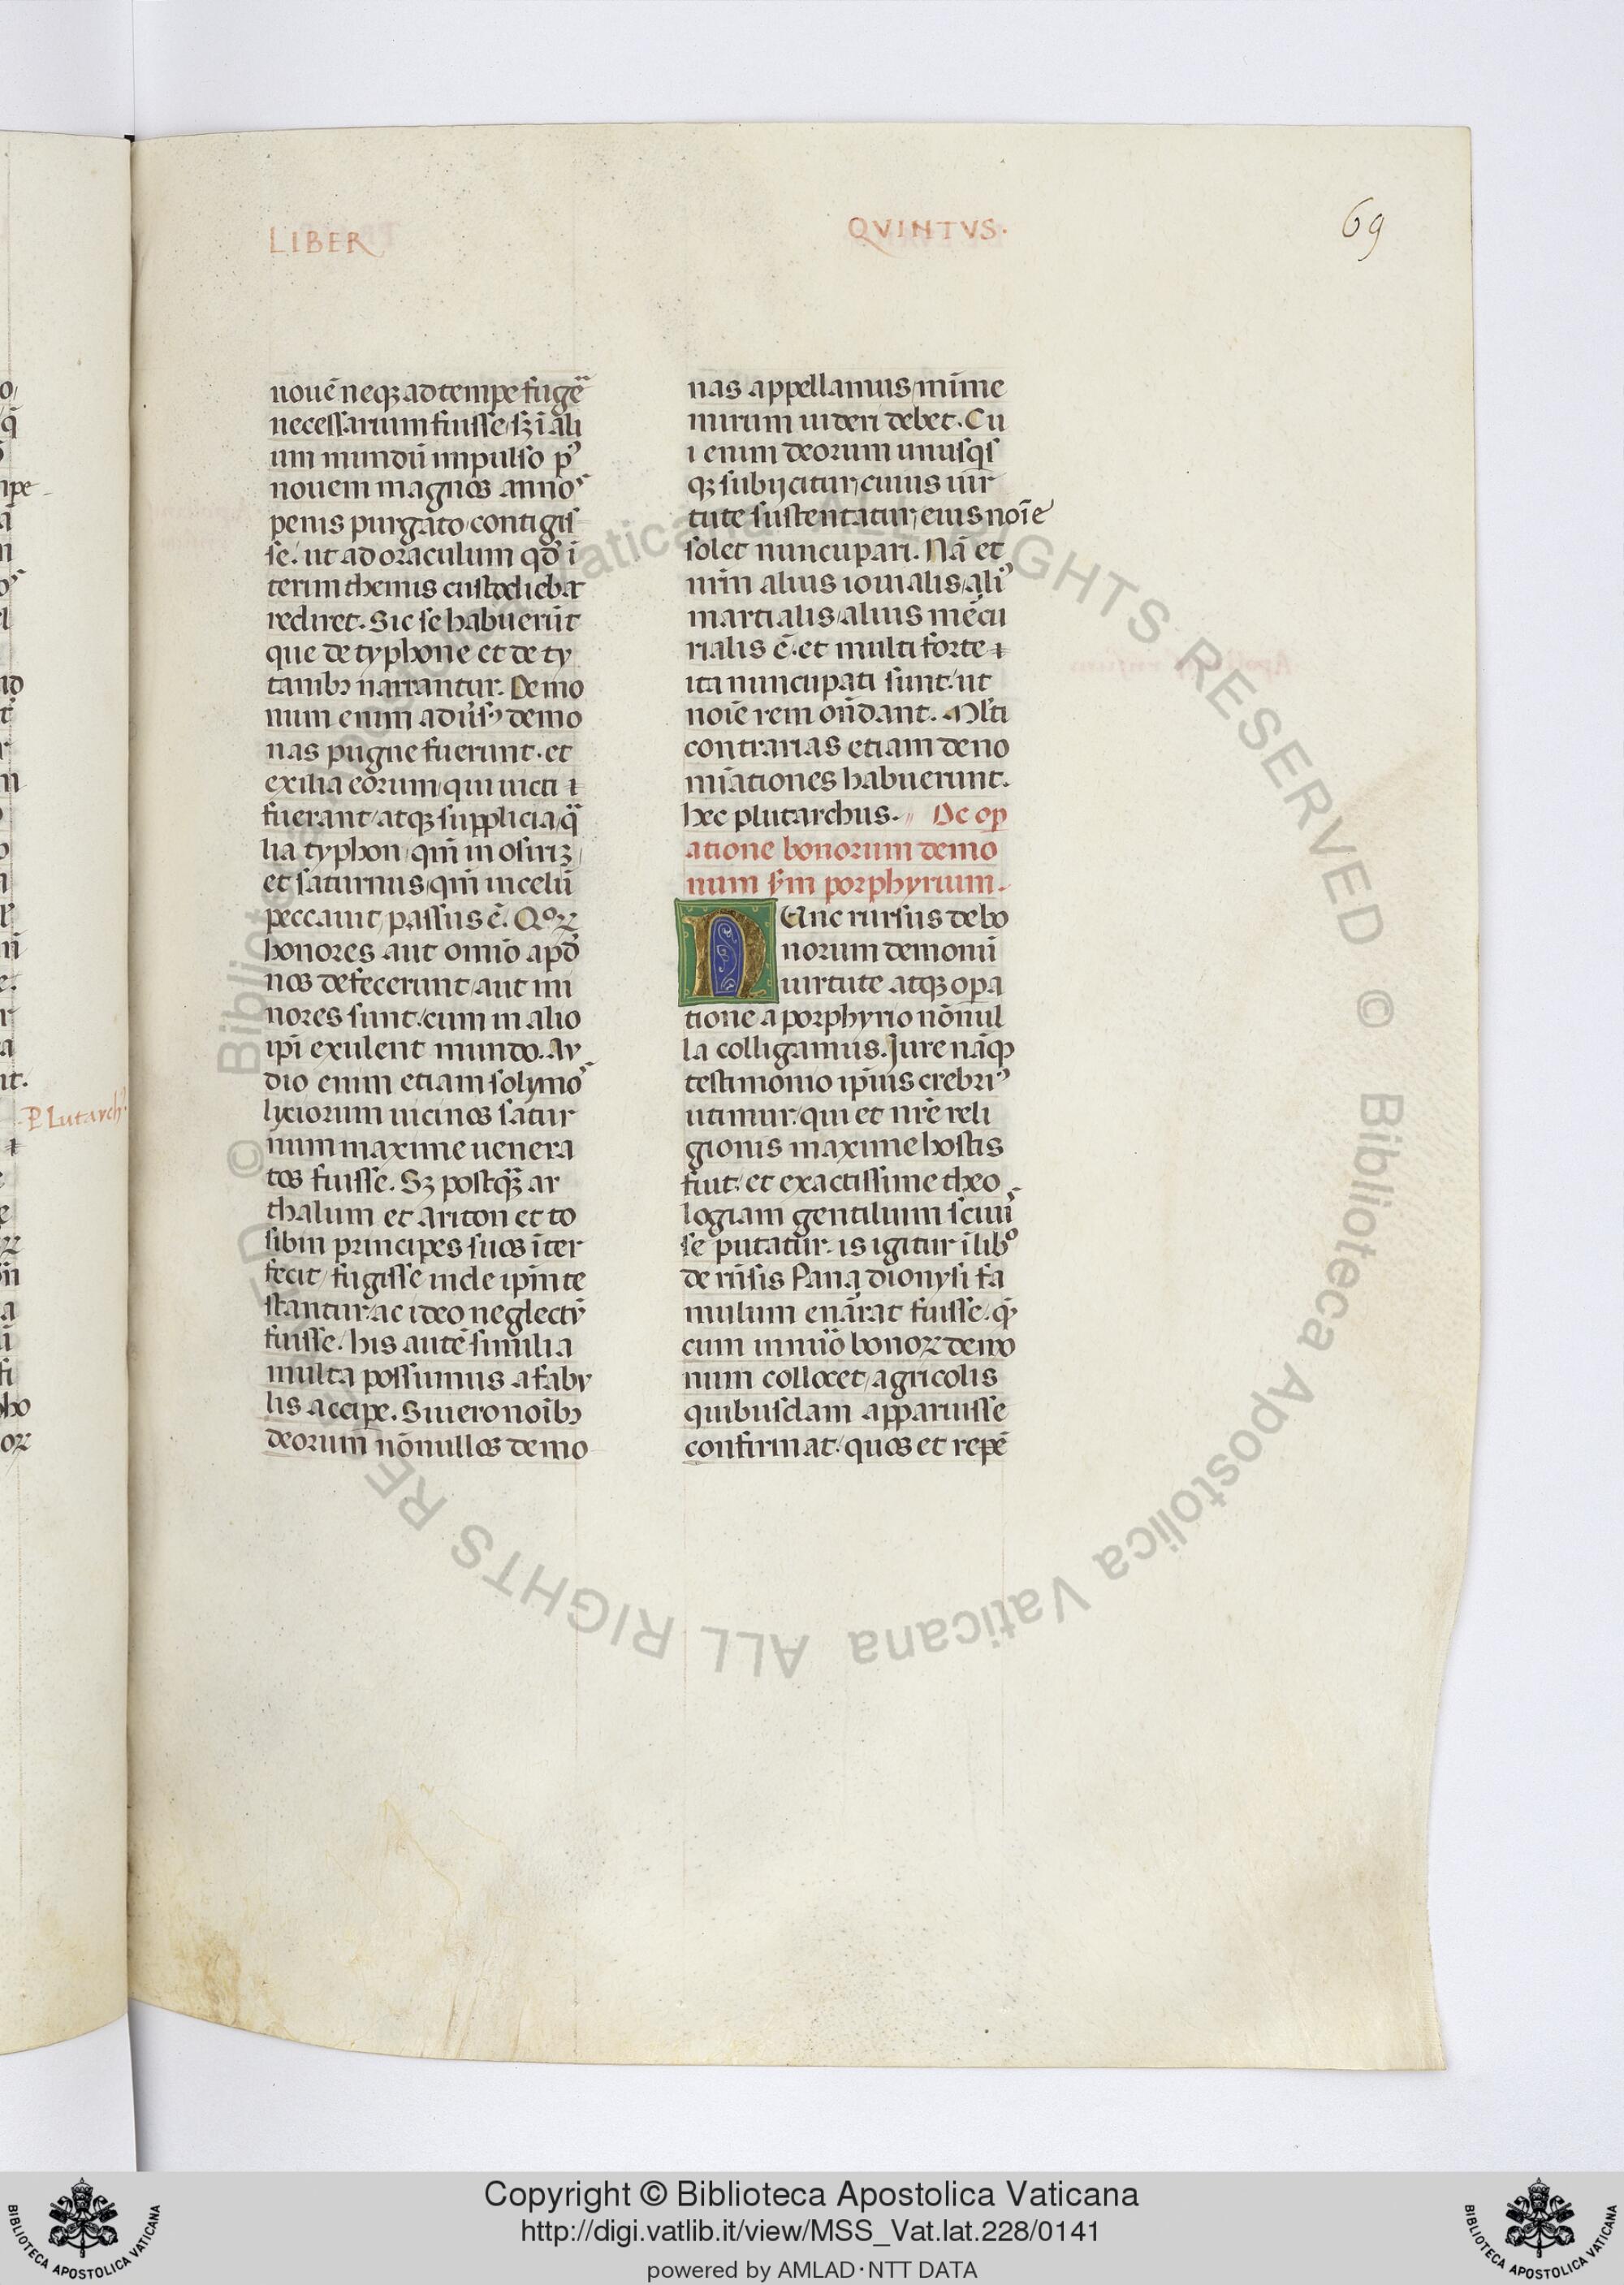 LIBER
QVINTVS.
69
nouē neqꝫ ad tempe fugē
necessarium fuisse/ sꝫ ī ali
um mundū impulso pꝰ
nouem magnos annoˢ
penis purgato contigiſ
se: ut ad oraculum qđ ī
terim themis custodiebat
rediret. Sic se habuerūt
que de typhone et de ty
tanibꝫ narrantur. Demo
num enim aduſꝰ demo
nas pugne fuerunt. et
exilia eorum qui uicti
fuerant/ atqꝫ supplicia/ q̄
lia typhon/ qm̄ in osirīꝫ
et saturnus/ qm̄ in celū
peccauit/ passus ē. Qoꝝ
honores aut omīo apđ
nos defecerunt/ aut mi
nores sunt/ cum in alio
ipī exulent mundo. Au
dio enim etiam solymoˢ
lyciorum uicinos satur
num maxime uenera
tos fuisse. Sꝫ postqꝫ̄ ar
thalum et ariton et to
sibin principes suos īter
fecit/ fugisse inde ipīn te
stantur: ac ideo neglectū
fuisse/ his autē similia
multa possumus a fabu
lis accipe. Si uero noībꝫ
deorum nōnullos demo
nas appellamus/ mīme
mirum uideri debet. Cu
i enim deorum unusqſ
qꝫ subijcitur, cuius uir
tute sustentatur, eius noīe
solet nuncupari. Nā et
nr̄m alius iouialis/ aliꝰ
martialis/ alius mēcu
rialis ē. et multi forte
ita nuncupati sunt: ut
noīe rem on̄dant. Mlti
contrarias etiam deno
mīationes habuerunt.
hec plutarchus. De op
atione bonorum demo
num sꝫm porphyrium.
Nunc rursus de bo
norum demonū
uirtute atqꝫ opa
tione a porphyrio nōnul
la colligamus. Jure nāqꝫ
testimonio ipīus crebriꝰ
utimur: qui et nr̄e reli
gionis maxime hostis
fuit: et exactissime theo
logiam gentilium sciuiſ
se putatur. is igitur ī libº
de rn̄sis Pana dionysi fa
mulum enārat fuisse. qꝫ
cum in nūo bonoꝝ demo
num collocet/ agricolis
quibusdam apparuisse
confirmat: quos et repē
Plutarchꝰ
Copyright © Biblioteca Apostolica Vaticana
http://digi.vatlib.it/view/MSS_Vat.lat.228/0141
powered by AMLAD·NTT DATA
BIBLIOTECA APOSTOLICA VATICANA
BIBLIOTECA APOSTOLICA VATICANA
© Biblioteca Apostolica Vaticana ALL RIGHTS RESERVED
© Biblioteca Apostolica Vaticana ALL RIGHTS RESERVED